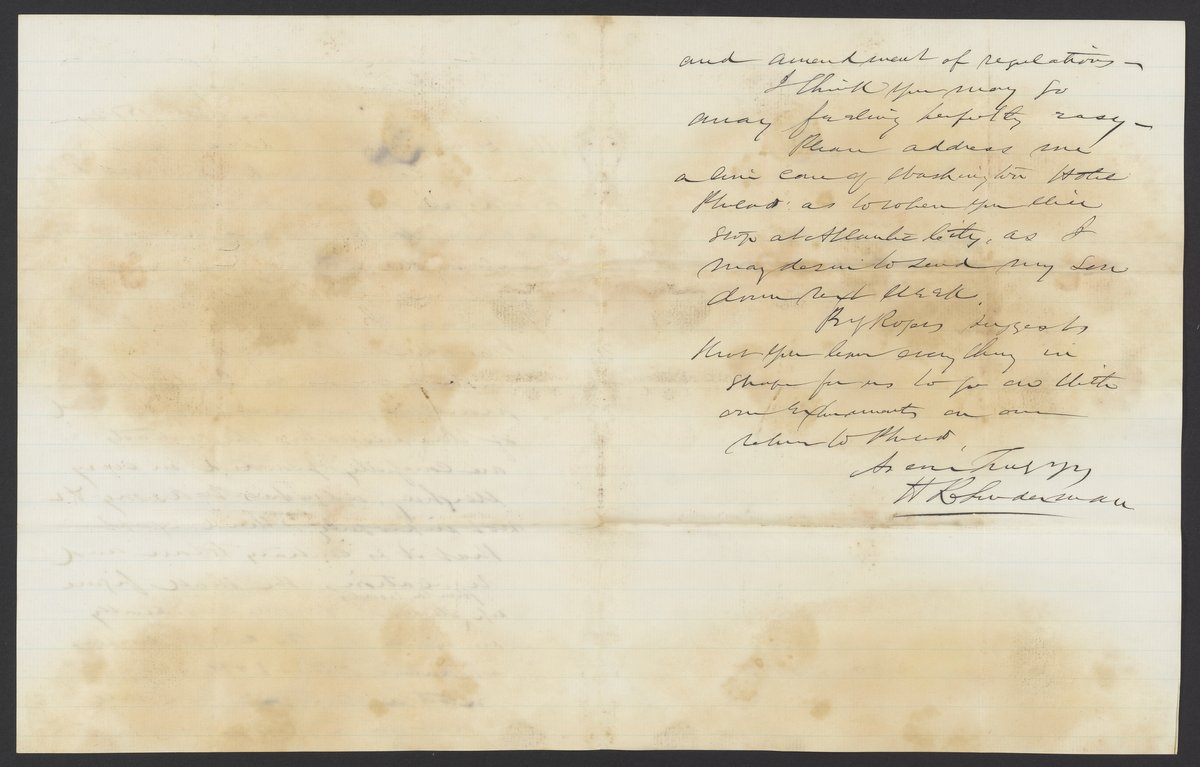 and amendment of regulations —
I think you may go
away feeling perfectly easy —
Please address me
a line care of Washington Hotel
Philad: as to when you will
stop at Atlantic City, as I
may desire to send my son
down next week.
Prof Rogers suggests
that you leave everything in
shape for us to go on with
our Experiments on our
return to Philad.
As ever Truly yrs
H R Linderman